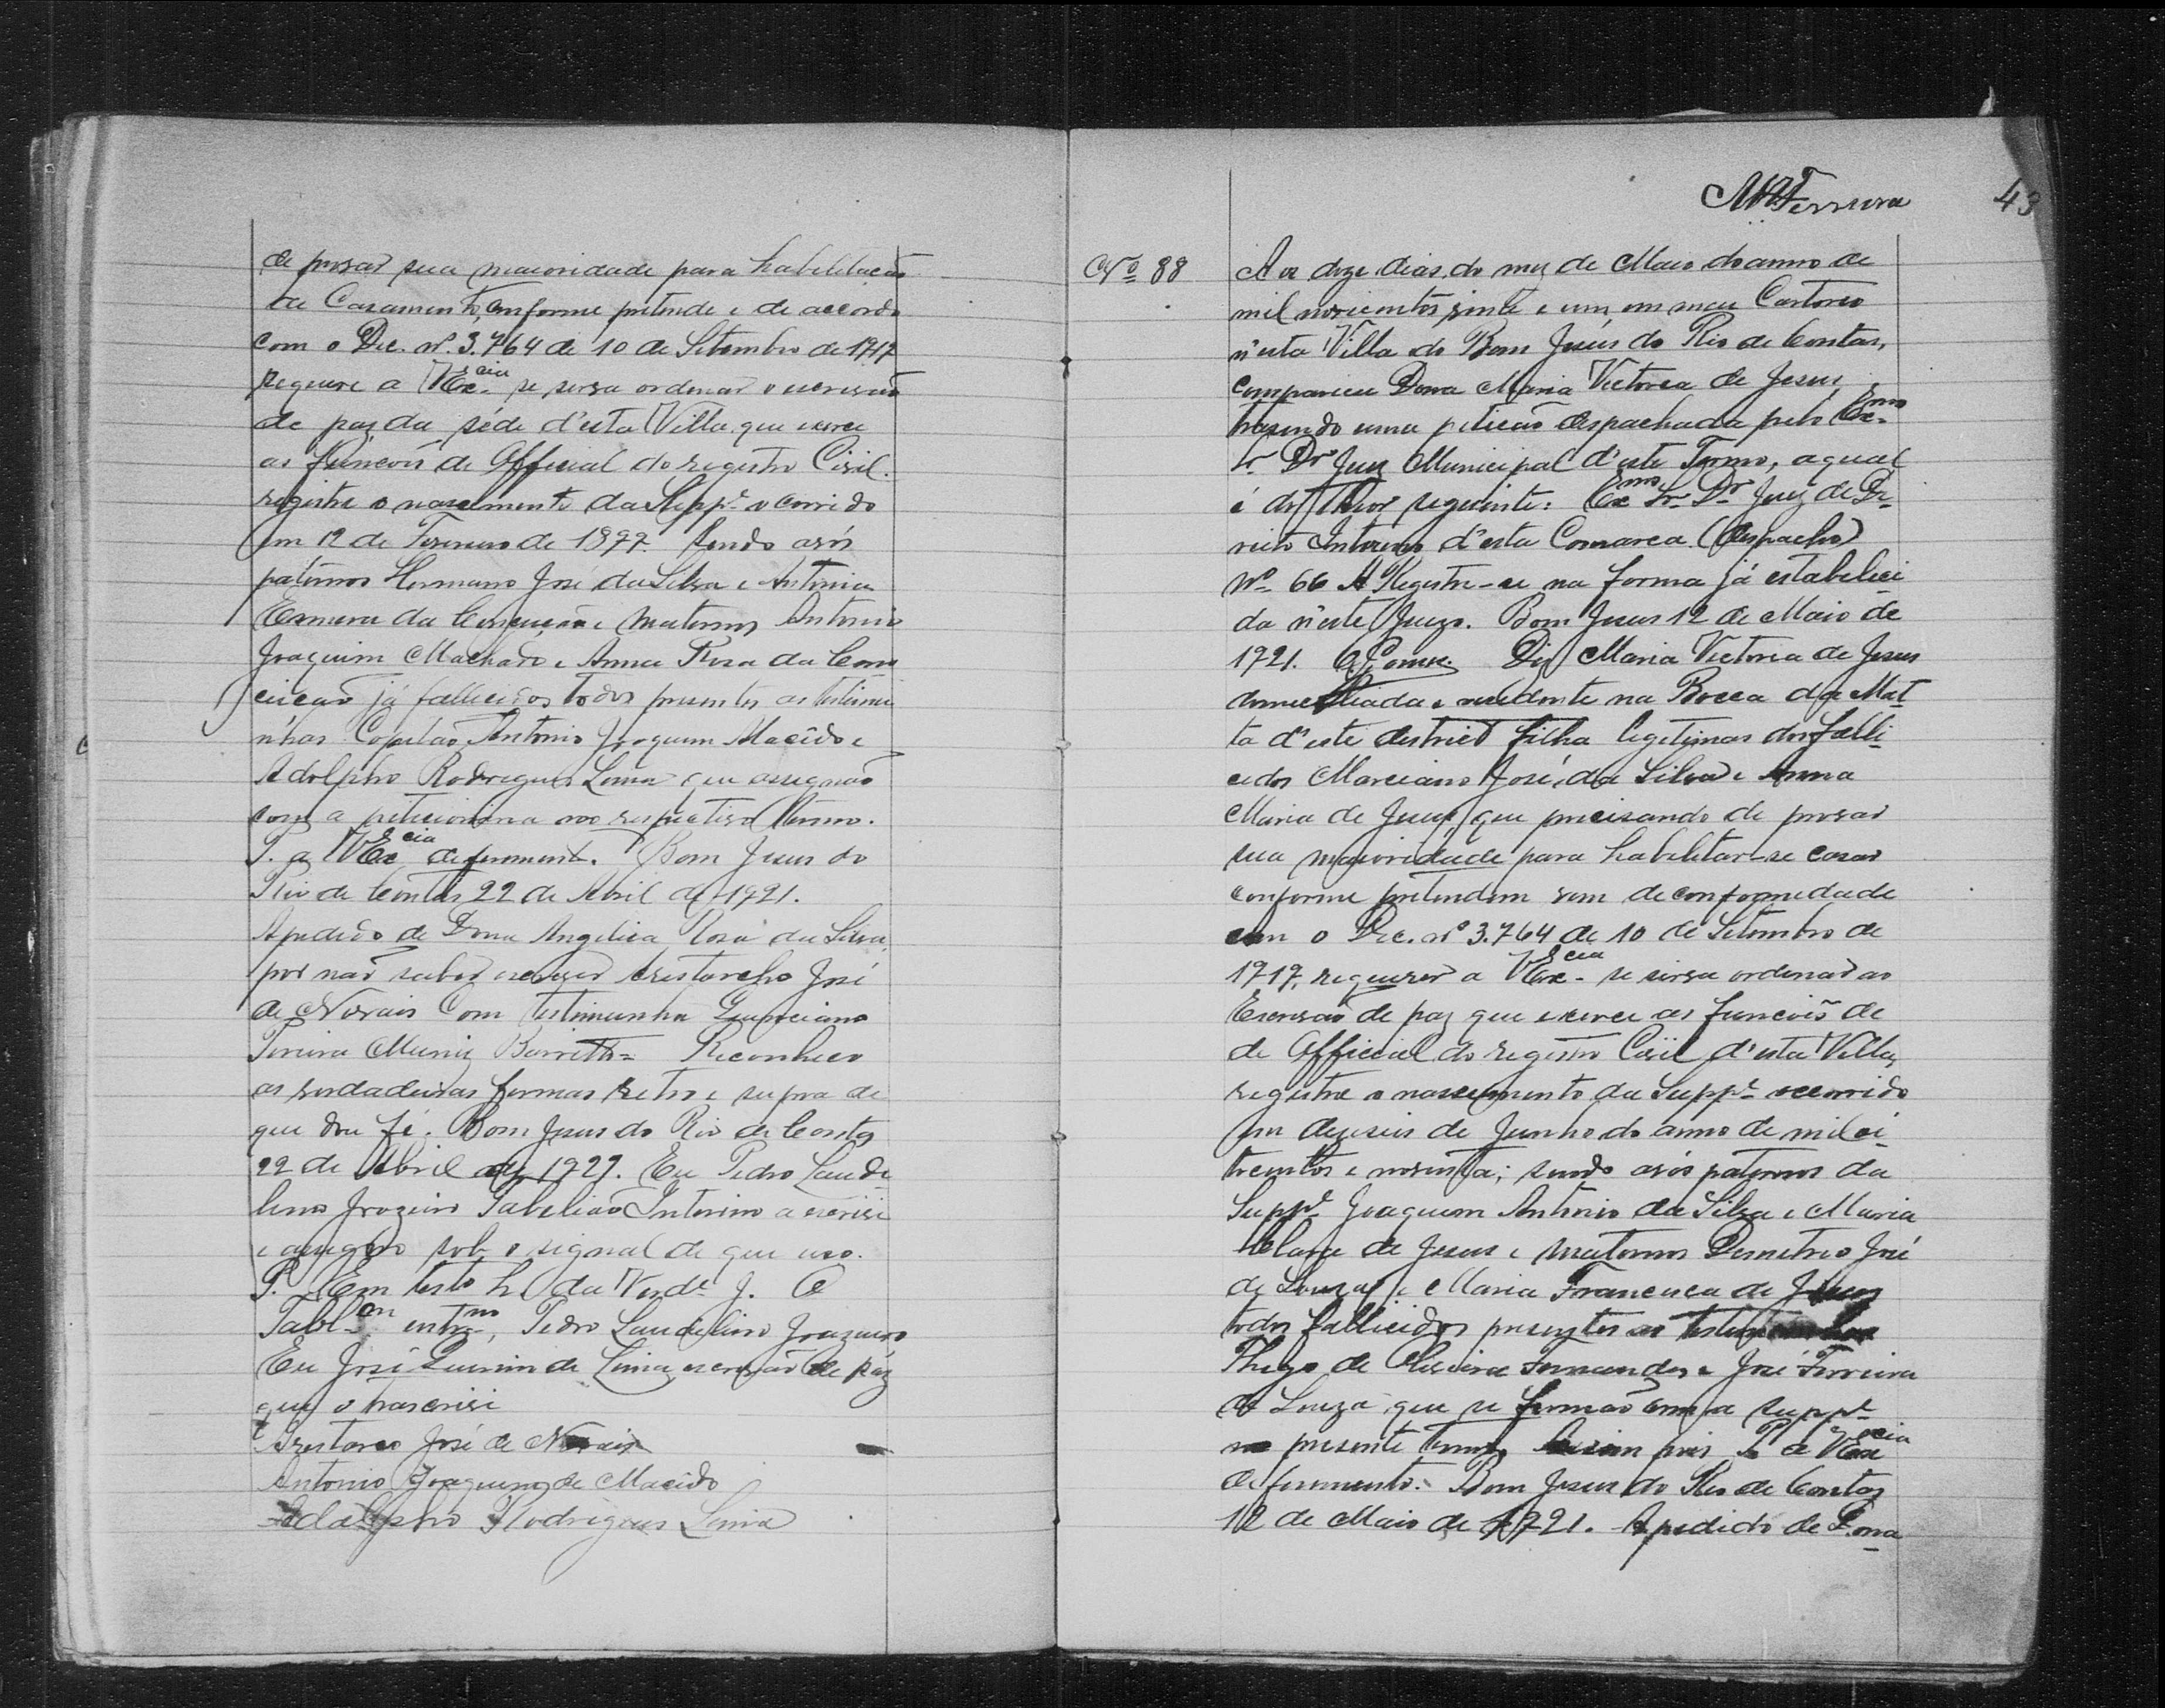 de provar sua maioridade para habilitação
de Casamento, conforme pretende e de accordo
com o Dec. nº. 3.764 de 10 de Setembro de 1917
requere a V Ex.cia se sirva ordenar o escrivão
de paz da séde d'esta Villa, que exerce
as funcoẽs de Official do registro Civil.
registre o nascimento da Suppe. occorrido
em 12 de Fevereiro de 1897. Sendo avós
patérnos Hermano José da Silva e Antonia
da Conceição e maternos Antonio
Joaquim Machado e Anna Rosa da Con
ceicão já fallecidos todos presentes as testimu
nhas Capitão Antonio Joaquim Macêdo e
Adolpho Rodrigues Lima que assignão
com a peticionaria no respectivo termo.
P. a V Ex.cia deferimento. Bom Jesus do
Rio de Contas 22 de Abril de 1921.
A pedido de Dona Angelica Rosa da Silva,
por não saber escrever Aristarcho José
de Novais Com testimunha
Pereira Muniz Barretto = Reconheco
as verdadeiras firmas retro e supra de
que dou fé. Bom Jesus do Rio de Contas
22 de Abril de 1921. Eu Pedro Laude
lino Tabelião Interino a escrivi
e assigno sob o signal de que uso.
P. Em testo da Verde. J. O
Tabl.am intro., Pedro Laudelino
Eu José de Lima escrivão de páz
que o trascrivi
Aristarco José de Novais
Antonio Joaquim de Macêdo
Adolpho Rodrigues Lima
Ferreira 43
Nº 88 Aos doze dias do mez de Maio do anno de
mil novicentos vinte e um em meu Cartorio
n'esta Villa do Bom Jesús do Rio de Contas,
compareceu Dona Maria Victoria de Jesus,
trasendo uma peticão despachada pelo Ex.mo
Sr. Dr Juiz Municipal d'este Termo, a qual
é do theor seguinte: Exmo Sr. Dr. Juiz de Di-
reito Interino d'esta Comarca (Despacho)
Nº 66 A Registre-se na forma já estabeleci-
da n'este Juizo. Bom Jesus 12 de Maio de
1921. Gomes. Diz Maria Victoria de Jesus
domiciliada e residente na Bocca da Mat-
ta d'este district filha legitimas dos falli-
cidos Marciano José da Silva e Anna
Maria de Jesus, que precisando de provar
sua maioridade para habilitar-se casar
conforme pretendem vem de conformedade
com o Dec. nº 3.764 de 10 de Setembro de
1917, requerer a V Ex.cia se sirva ordenar ao
Escrivão de paz que exerce as funcoẽs de
de Official do registro Civil d'esta Villa,
registre o nascimento da Suppe. occorrido
em deseseis de Junho do anno de mil oi-
tocentos e noventa; sendo avós paternos da
Suppe. Joaquim Antonio da Silva e Maria
Clara de Jesus e maternos Demetrio José
de Souza e Maria Francisca de Jesus
todos fallicidos presentes as testimunhas
de Oliveira Fernandes e José Ferreira
de Souza que se firmão com a suppe.
no presente termo, Assim pois P. a V Ex.cia
deferimento. Bom Jesus do Rio de Contas
12 de Maio de 1921. A pedido de Dona